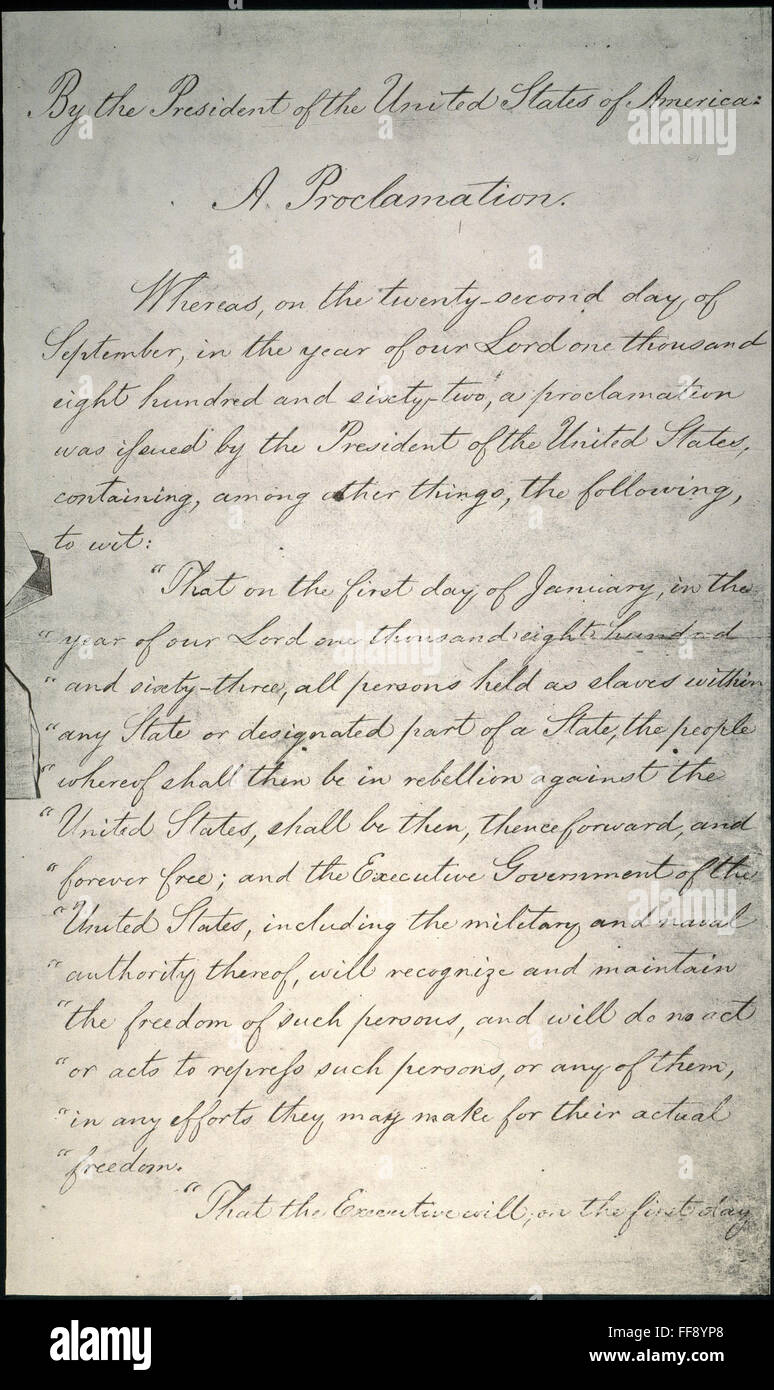 By the President of the United States of America:
A Proclamation.
Whereas, on the twenty-second day of
September, in the year of our Lord one thousand
eight hundred and sixty-two, a proclamation
was issued by the President of the United States,
containing, among other things, the following,
to wit:
"That on the first day of January, in the
"year of our Lord one thousand eight hundred
"and sixty-three, all persons held as slaves within
"any State or designated part of a State, the people
"whereof shall then be in rebellion against the
"United States, shall be then, thenceforward, and
"forever free; and the Executive Government of the
"United States, including the military and naval
"authority thereof, will recognize and maintain
"the freedom of such persons, and will do no act
"or acts to repress such persons, or any of them,
"in any efforts they may make for their actual
"freedom.
"That the Executive will, on the first day
alamy
alamy
alamy
alamy
alamy
a
a
a
a
a
alamy
Image ID: FF8YP8
www.alamy.com